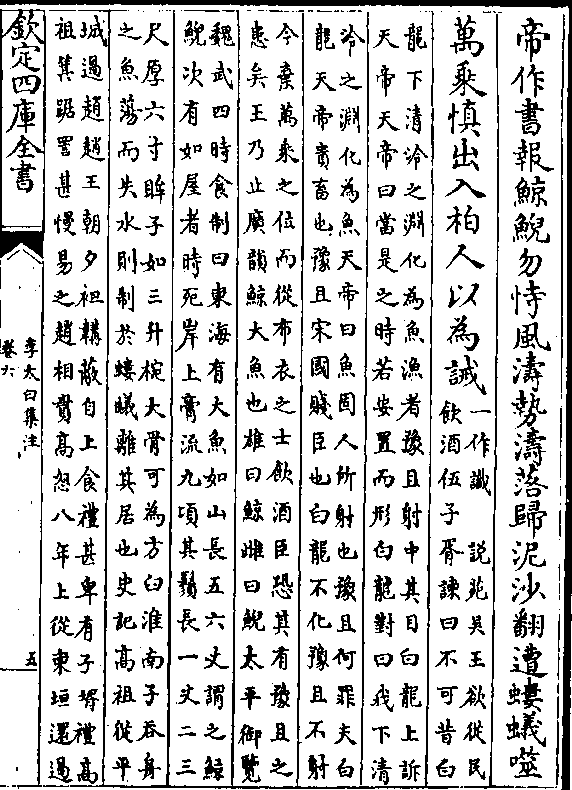 帝作書報鯨鯢勿恃風濤勢濤落歸泥沙翻遭螻蟻噬
萬乘慎出入柏人以為誡
一作識　說苑吳王欲從民
飲酒伍子胥諫曰不可昔白
龍下清泠之淵化為魚漁者豫且射中其目白龍上訴
天帝天帝曰當是之時若安置而形白龍對曰我下清
泠之淵化為魚天帝曰魚固人所射也豫且何罪夫白
龍天帝貴畜也豫且宋國賤臣也白龍不化豫且不射
今棄萬乘之位而從布衣之士飲酒臣恐其有豫且之
患矣王乃止廣韻鯨大魚也雄曰鯨雌曰鯢太平御覽
魏武四時食制曰東海有大魚如山長五六丈謂之鯨
鯢次有如屋者時死岸上膏流九頃其鬚長一丈二三
尺厚六寸眸子如三升椀大骨可為方臼淮南子吞舟
之魚蕩而失水則制於螻蟻離其居也史記高祖從平
城過趙趙王朝夕袒韝蔽自上食禮甚卑有子壻禮高
祖箕踞詈甚慢易之趙相貫高怒八年上從東垣還過
欽定四庫全書
李太白集注
卷六
五